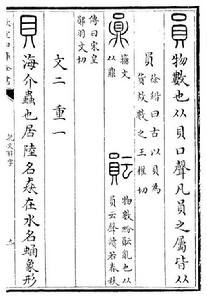 員 物數也从貝口聲凡員之屬皆从
員 徐鍇曰古以貝爲
貨故數之王權切
籒文
从鼎
物數紛䫟亂也从
員云聲讀若春秋
傳曰宋皇
鄖羽文切
文二 重一
貝 海介蟲也居陸名猋在水名蜬象形
說文解字